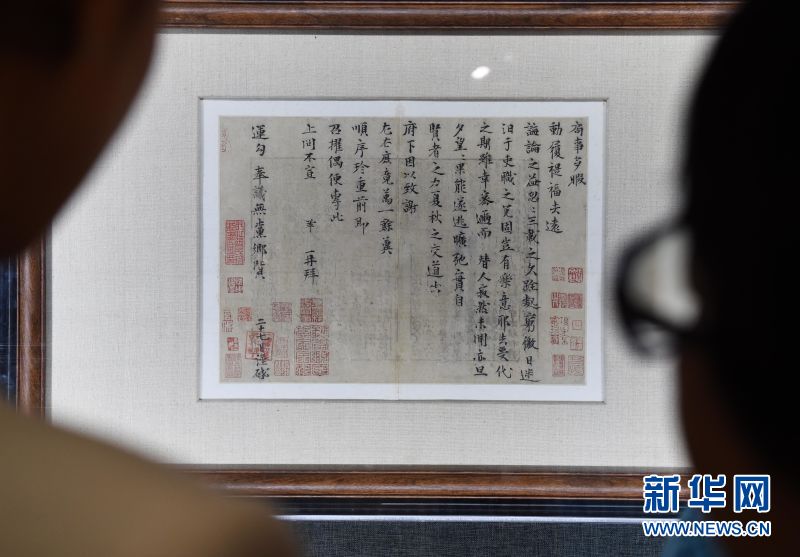 局事多暇
動履禔福去遠
誨論之益忽〻三載之久跧處窮徼日迷
汩于吏職之冗固豈有樂意耶去受代
之期雖幸密邇而 替人寂然未聞亦旦
夕望〻果能遂逃曠弛實自
賢者之力夏秋之交道出
府下因以致謝
左右庶竟萬一餘冀
順序珍重前即
召擢偶便專此
上問不宣 鞏 再拜
運勾奉議無黨鄉賢
二十七日謹啓
新华网
WWW.NEWS.CN